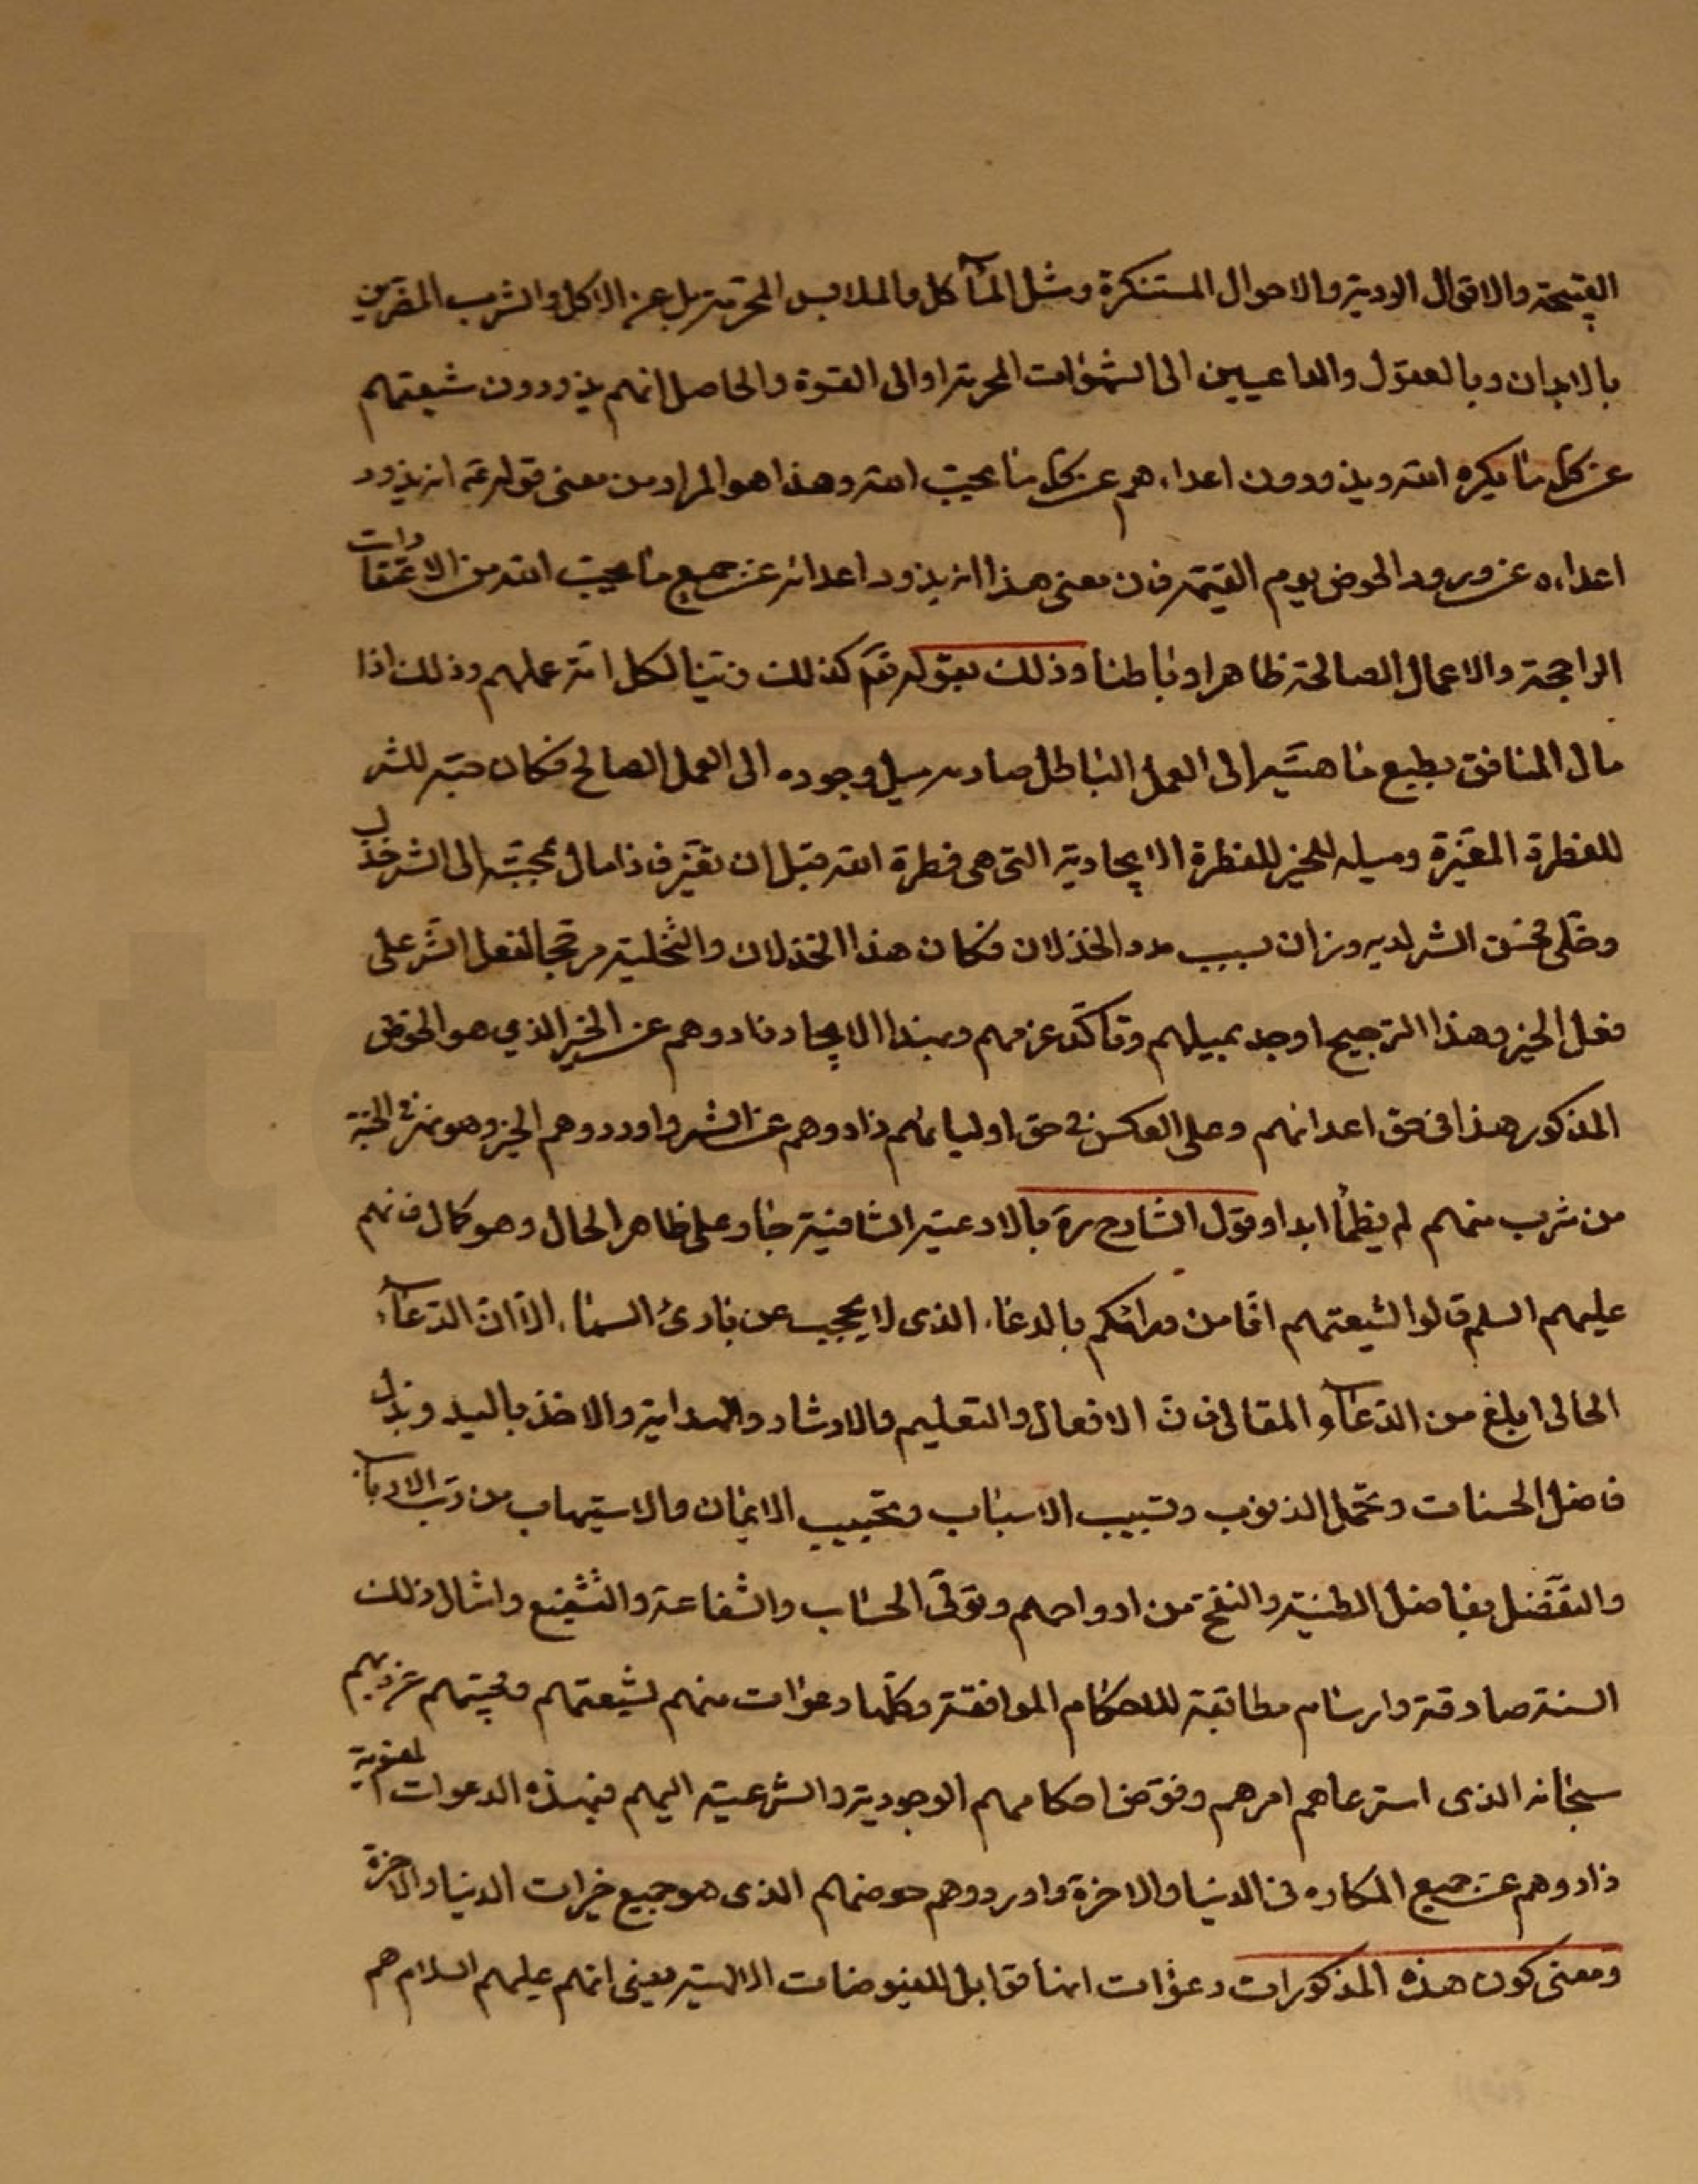 القبيحة والاقوال الردية والاحوال المستنكرة ومثل المآكل والملابس المحرمة بل عن الاكل والشرب المضرين
بالابدان وبالعقول والداعيين الى الشهوات المحرمة او الى القسوة والحاصل انهم يذودون شيعتهم
عن كل ما يكره الله ويذودون اعداءهم عن كل ما يحب الله وهذا هو المراد من معنى قوله انه يذود
اعداءه عن ورود الحوض يوم القيمة فان معنى هذا انه يذود اعدائه عن جميع ما يحب الله من الاعتقادات
الراجحة والاعمال الصالحة ظاهرا وباطنا وذلك بقوله تعم كذلك زينا لكل امة عملهم وذلك اذا
مال المنافق بطبع ماهيته الى العمل الباطل صادم ميل وجوده الى العمل الصالح فكان حبه للشر
للفطرة المغيرة وميله للخير للفطرة الايجادية التى هى فطرة الله قبل ان تغير فاذا مال بمحبته الى الشر خذل
وخلى فحسن الشر لديه وزان بسبب مدد الخذلان فكان هذا الخذلان والتخلية مرجحا لفعل الشر على
فعل الخير وهذا الترجيح اوجد بميلهم وتأكد عزمهم وبهذا الايجاد ذادوهم عن الخير الذي هو الحوض
المذكور هذا فى حق اعدائهم وعلى العكس فى حق اوليائهم ذادوهم عن الشر واوردوهم الخير وهو نهر فى الجنة
من شرب منهم لم يظمأ ابدا وقول الشارح ره بالادعية الشافية جار على ظاهر الحال وهو كمال فانهم
عليهم السلم قالوا لشيعتهم انا من ورائكم بالدعاء الذى لا يحجب عن بارئ السماء الا ان الدعاء
الحالى ابلغ من الدعاء المقالى فان الافعال والتعليم والارشاد والهداية والاخذ باليد وبذل
فاضل الحسنات وتحمل الذنوب وتسبيب الاسباب وتحبيب الايمان والاستيهاب من رب الارباب
والتفضل بفاضل الطينة والنفخ من ارواحهم وتولى الحساب والشفاعة والتشفيع وامثال ذلك
السنة صادقة وارسام مطابقة للاحكام الموافقة وكلها دعوات منهم لشيعتهم ومحبيهم عن ربهم
سبحانه الذى استرعاهم امرهم وفوض احكامهم الوجودية والشرعية اليهم فبهذه الدعوات المعنوية
ذادوهم عن جميع المكاره فى الدنيا والاخرة واوردوهم حوضهم الذى هو جميع خيرات الدنيا والاخرة
ومعنى كون هذه المذكورات دعوات انها قوابل للفيوضات الالهية يعنى انهم عليهم السلام هم